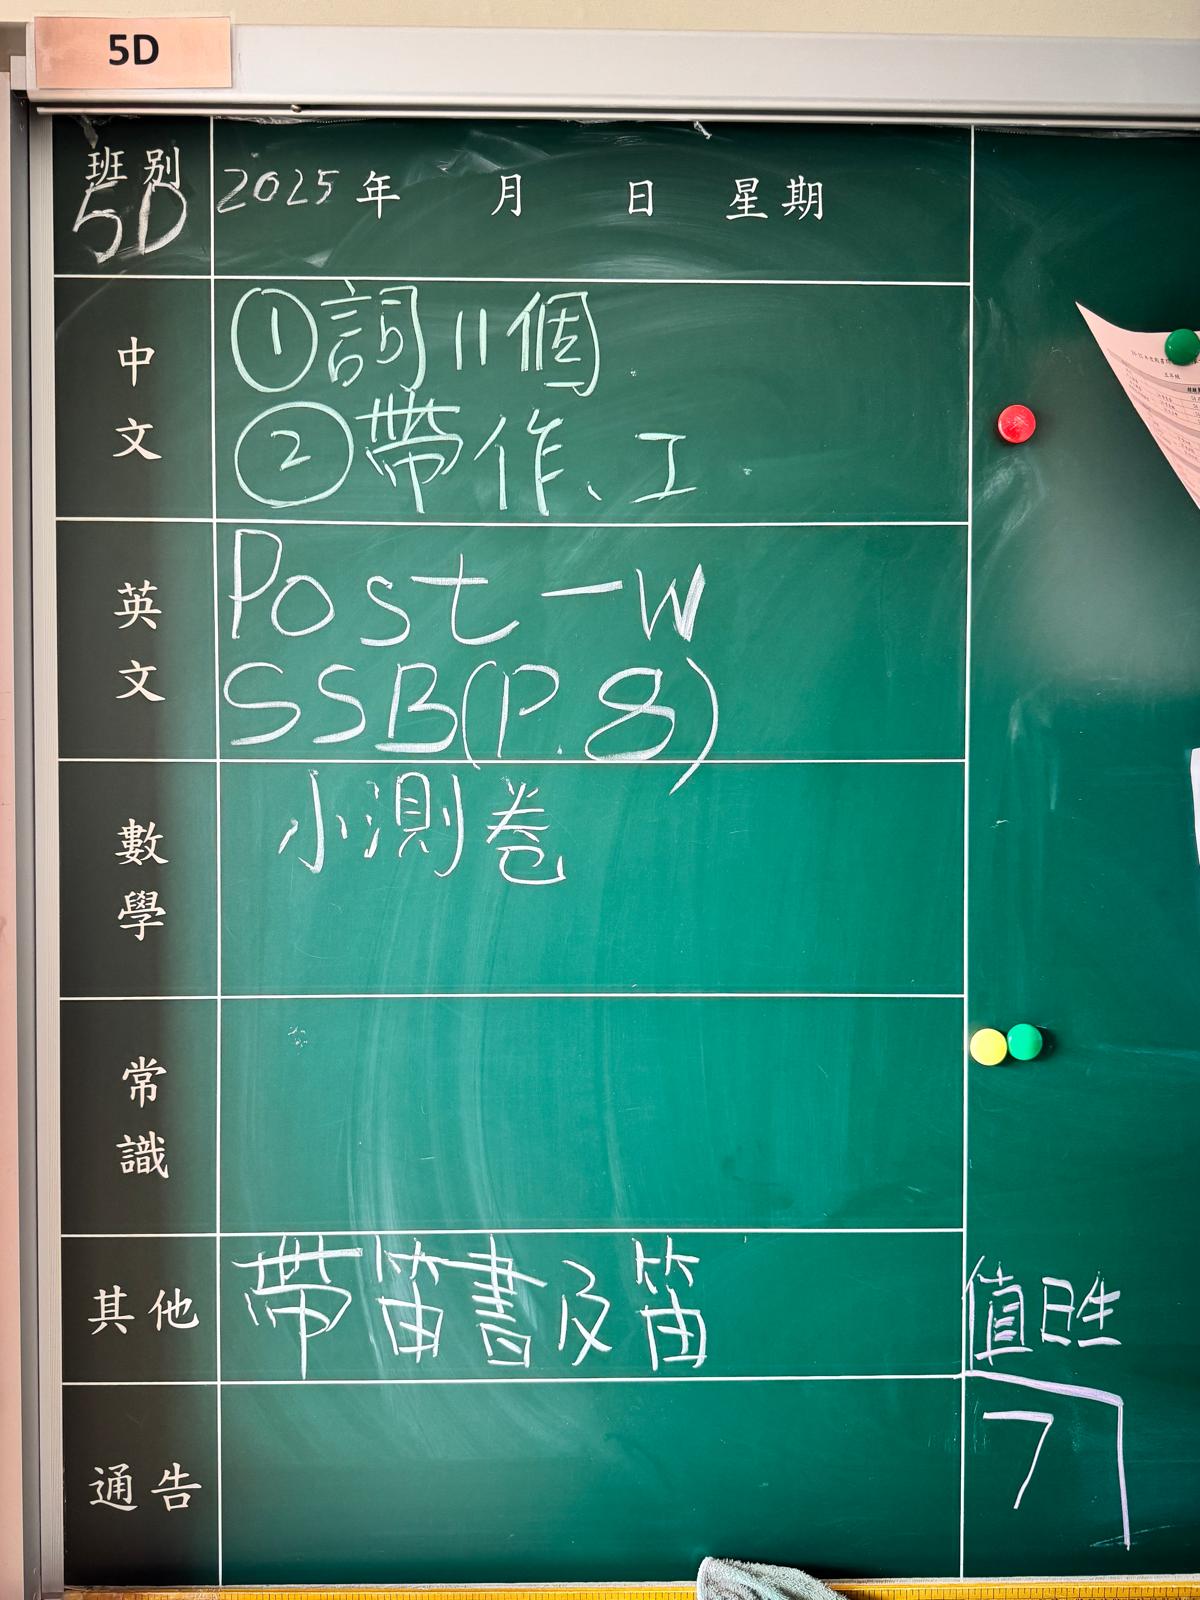 5D
班別 5D
2025年 月 日 星期
中文
①詞11個
②帶作、工
英文
Post-W
SSB(P.8)
數學
小測卷
常識
其他
帶笛書及笛
值日生
7
通告